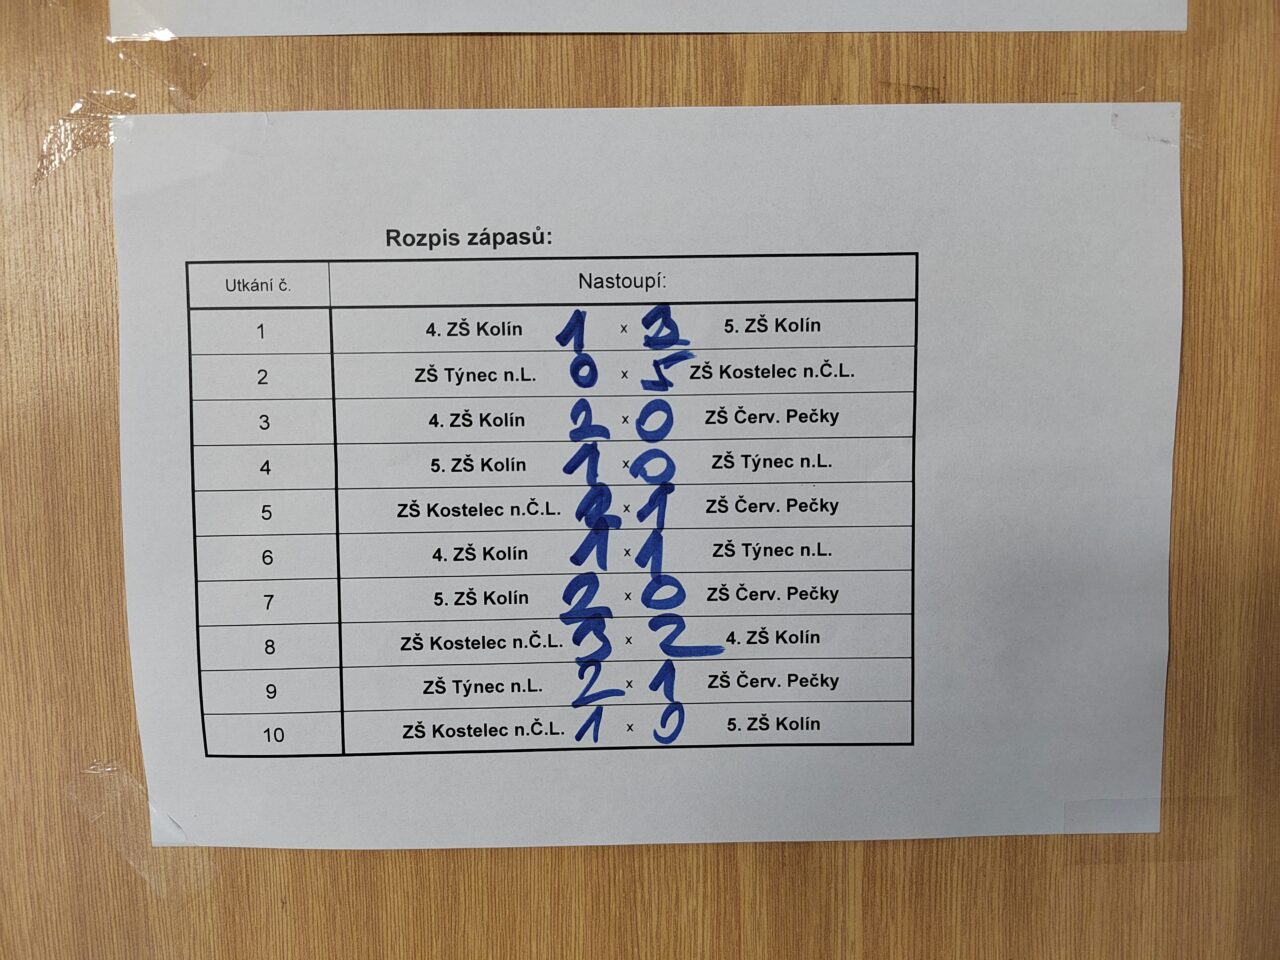 Rozpis zápasů:
Utkání č. Nastoupí:
1 4. ZŠ Kolín 1 x 3 5. ZŠ Kolín
2 ZŠ Týnec n.L. 0 x 5 ZŠ Kostelec n.Č.L.
3 4. ZŠ Kolín 2 x 0 ZŠ Červ. Pečky
4 5. ZŠ Kolín 1 x 0 ZŠ Týnec n.L.
5 ZŠ Kostelec n.Č.L. x 1 ZŠ Červ. Pečky
6 4. ZŠ Kolín 1 x 1 ZŠ Týnec n.L.
7 5. ZŠ Kolín 2 x 0 ZŠ Červ. Pečky
8 ZŠ Kostelec n.Č.L. 3 x 2 4. ZŠ Kolín
9 ZŠ Týnec n.L. 2 x 1 ZŠ Červ. Pečky
10 ZŠ Kostelec n.Č.L. 1 x 0 5. ZŠ Kolín